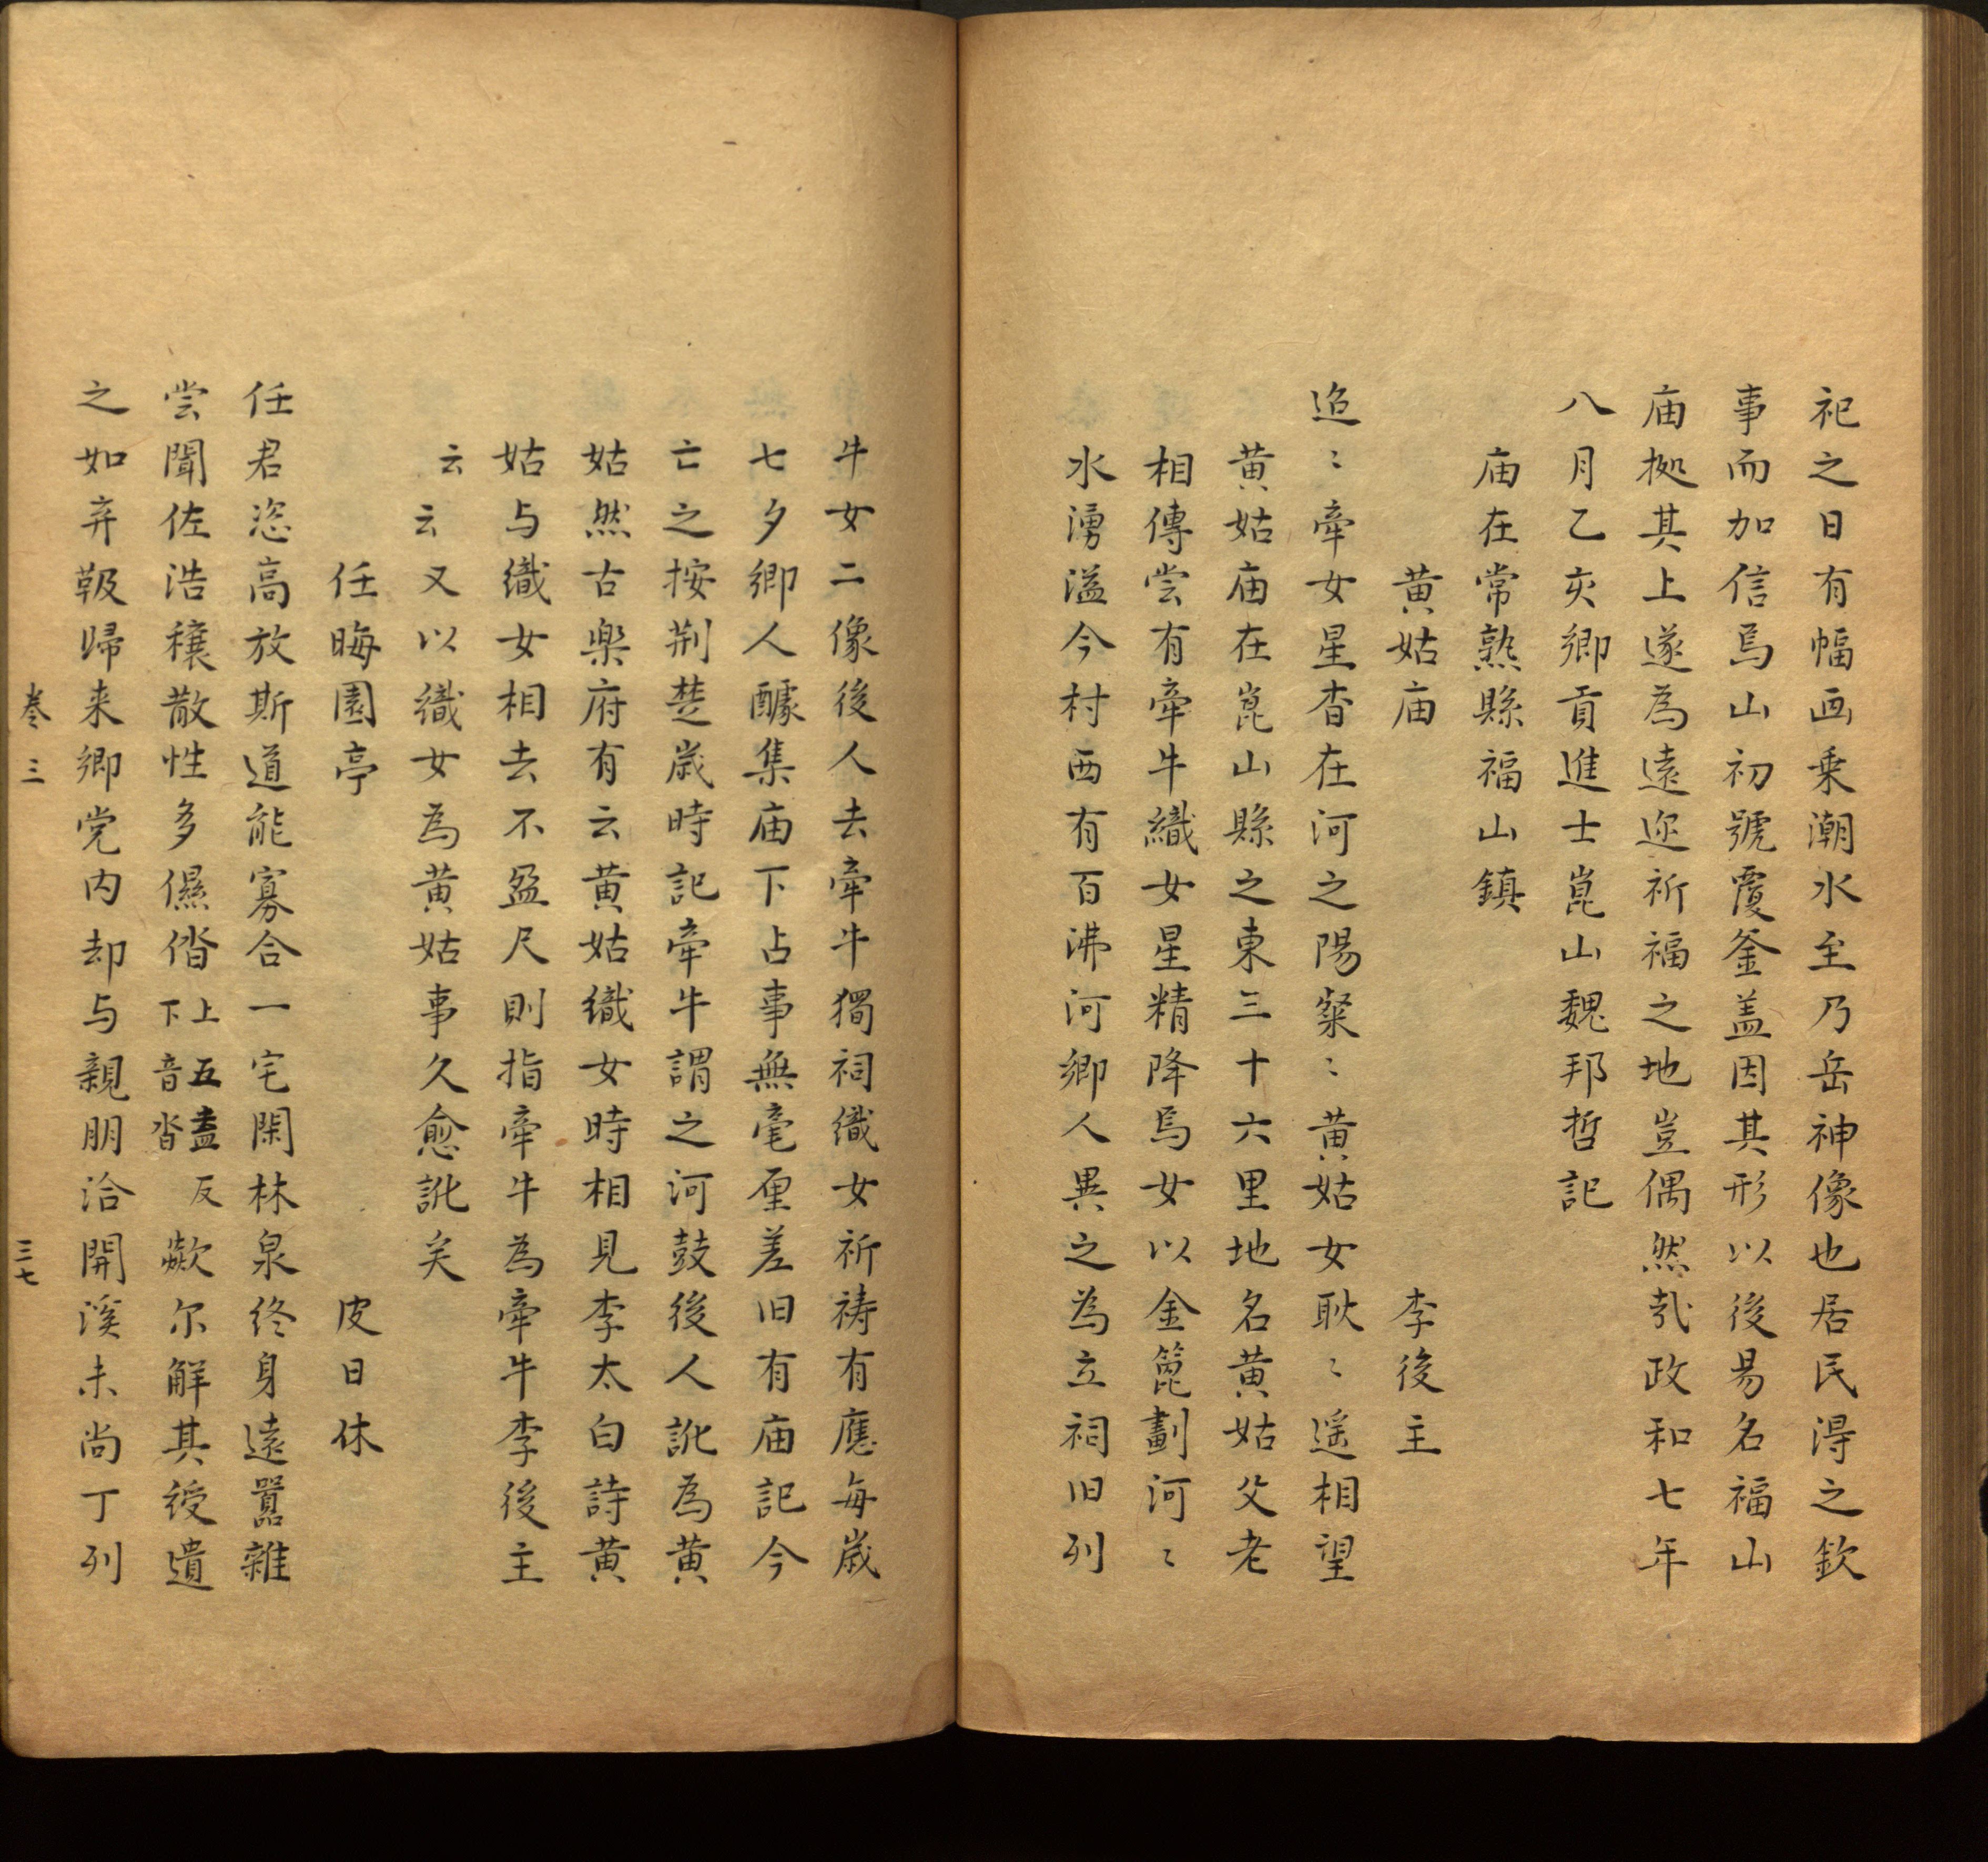 祀之日有幅画乗潮水至乃岳神像也居民淂之欽
事而加信焉山初號覆釜盖因其形以後易名福山
庙㨿其上遂為遠迩祈福之地豈偶然㢤政和七年
八月乙亥鄉貢進士崑山魏邦哲記
庙在常熟縣福山鎮
黄姑庙　李後主
迢〻牽女星杳在河之陽粲〻黄姑女耿〻遥相望
黄姑庙在崑山縣之東三十六里地名黄姑父老
相傳尝有牽牛織女星精降焉女以金篦劃河〻
水湧溢今村西有百沸河鄉人異之為立祠旧列
牛女二像後人去牽牛獨祠織女祈祷有應每歲
七夕鄉人醵集庙下占事無毫厘差旧有庙記今
亡之按荆楚歲時記牽牛謂之河鼓後人訛為黄
姑然古楽府有云黄姑織女時相見李太白詩黄
姑与織女相去不盈尺則指牽牛為牽牛李後主
云云又以織女為黄姑事久愈訛矣
任晦園亭　皮日休
任君恣高放斯道能寡合一宅閑林泉终身遠囂雜
尝聞佐浩穰散性多儑偺上五盍反下音沓歘尔解其綬遺
之如弃靸歸来鄉党内却与親朋洽開溪未尚丁列
巻三　三七